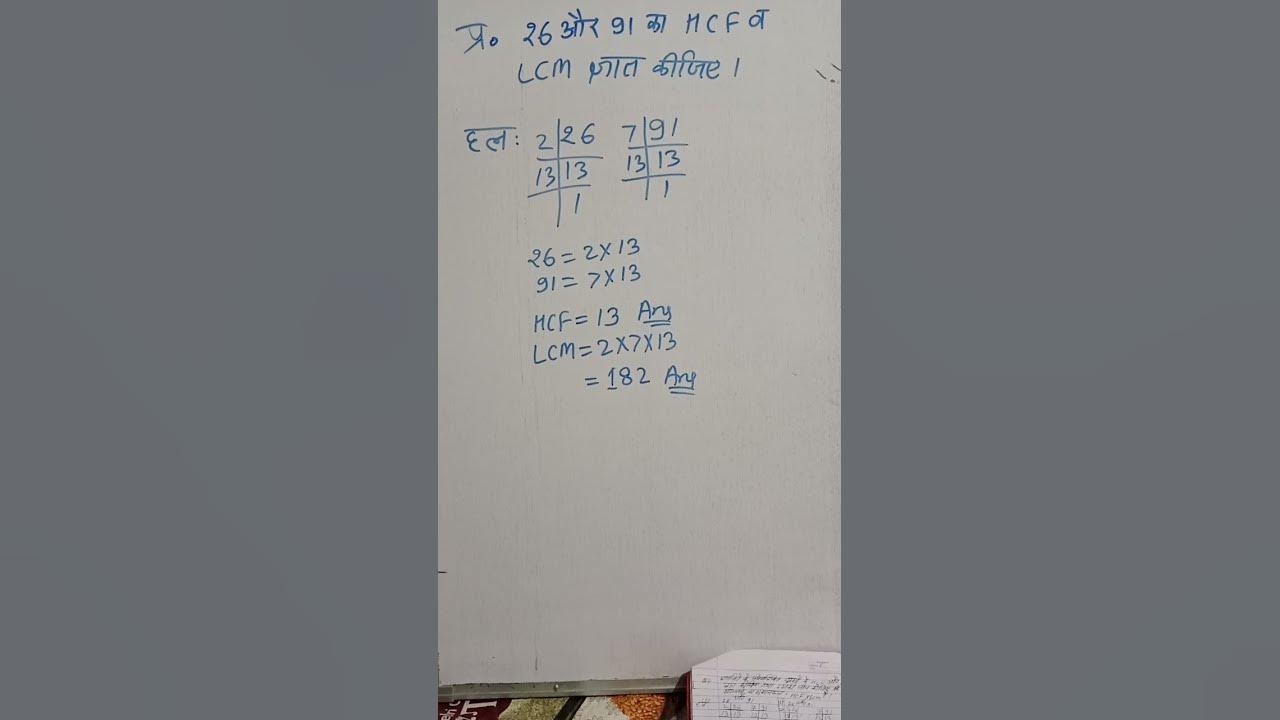 प्र० 26 और 91 का HCF व
LCM ज्ञात कीजिए।
हल: 2 26 7 91
13 13 13 13
1 1
26 = 2×13
91 = 7×13
HCF = 13 Ans
LCM = 2×7×13
= 182 Ans